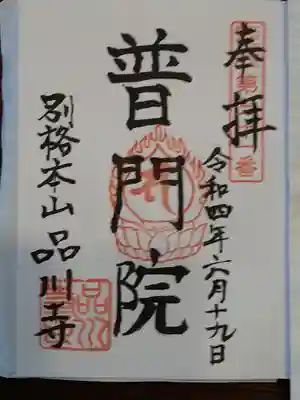 奉拝
令和四年六月十九日
普門院
別格本山品川寺